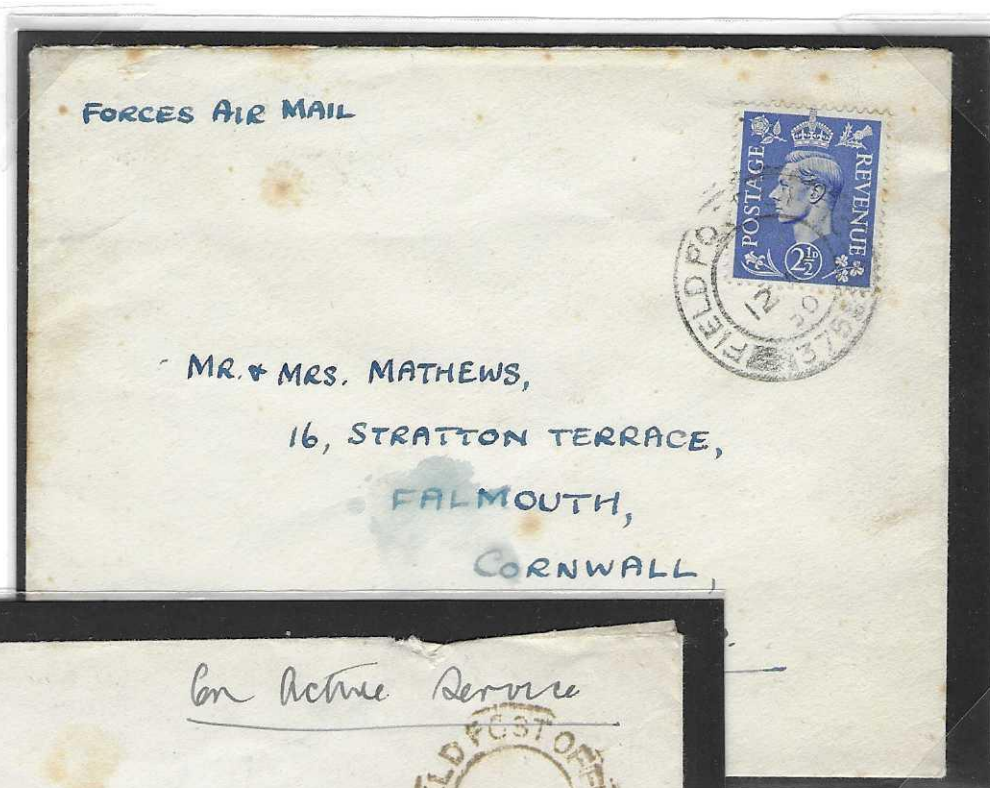 FORCES AIR MAIL
POSTAGE REVENUE
2½D
FIELD PO
12
MR. & MRS. MATHEWS,
16, STRATTON TERRACE,
FALMOUTH,
CORNWALL,
On Active Service
FIELD POST OFFI